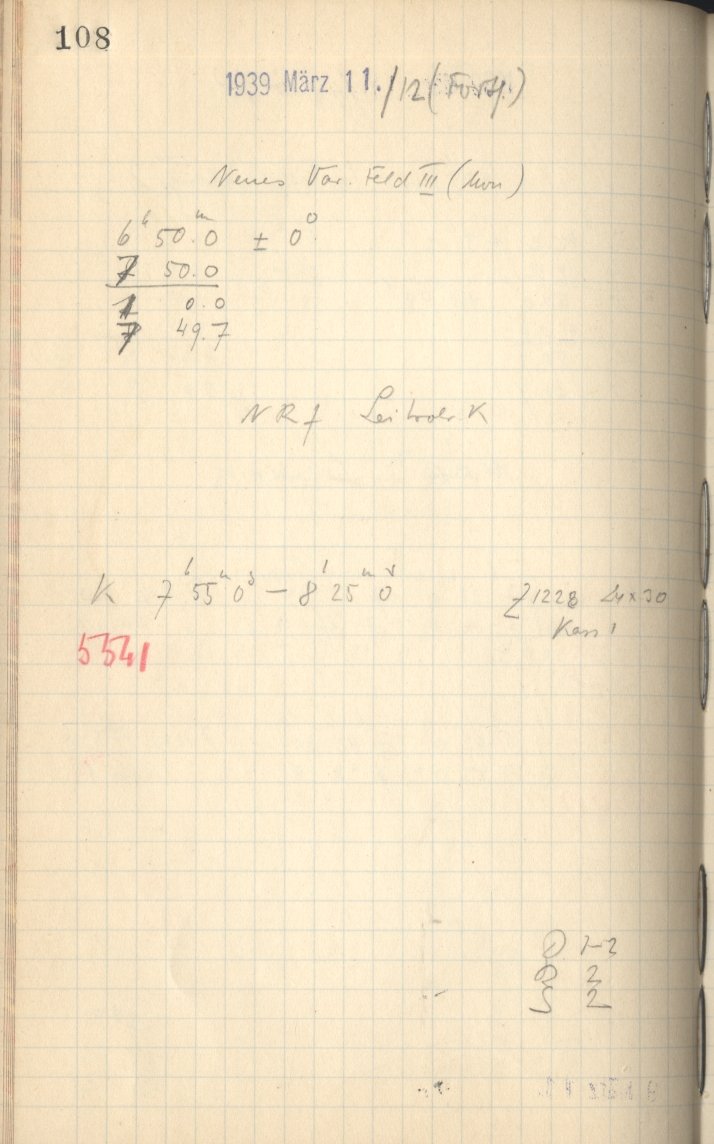 108
1939 März 11./12 (Forts.)
Neues Var. Feld III (Mon)
6h 50.m0 ± 0°
7 50.0
1 0.0
7 49.7
NRf K
K 7h 55m 0s – 8h 25m 0s Z1228 24x30
Kass 1
5541
1-2
2
S 2